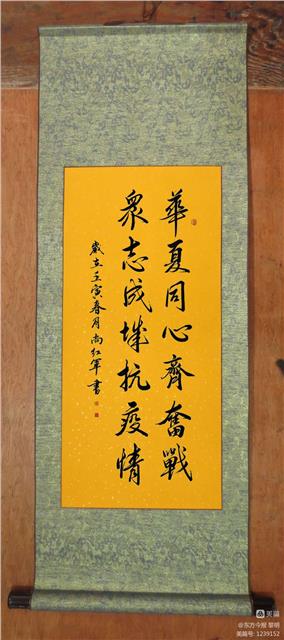 華夏同心齊奮戰
眾志成城抗疫情
歲在壬寅春月尚红軍書
美篇
@东方今报 黎明
美篇号: 1239152